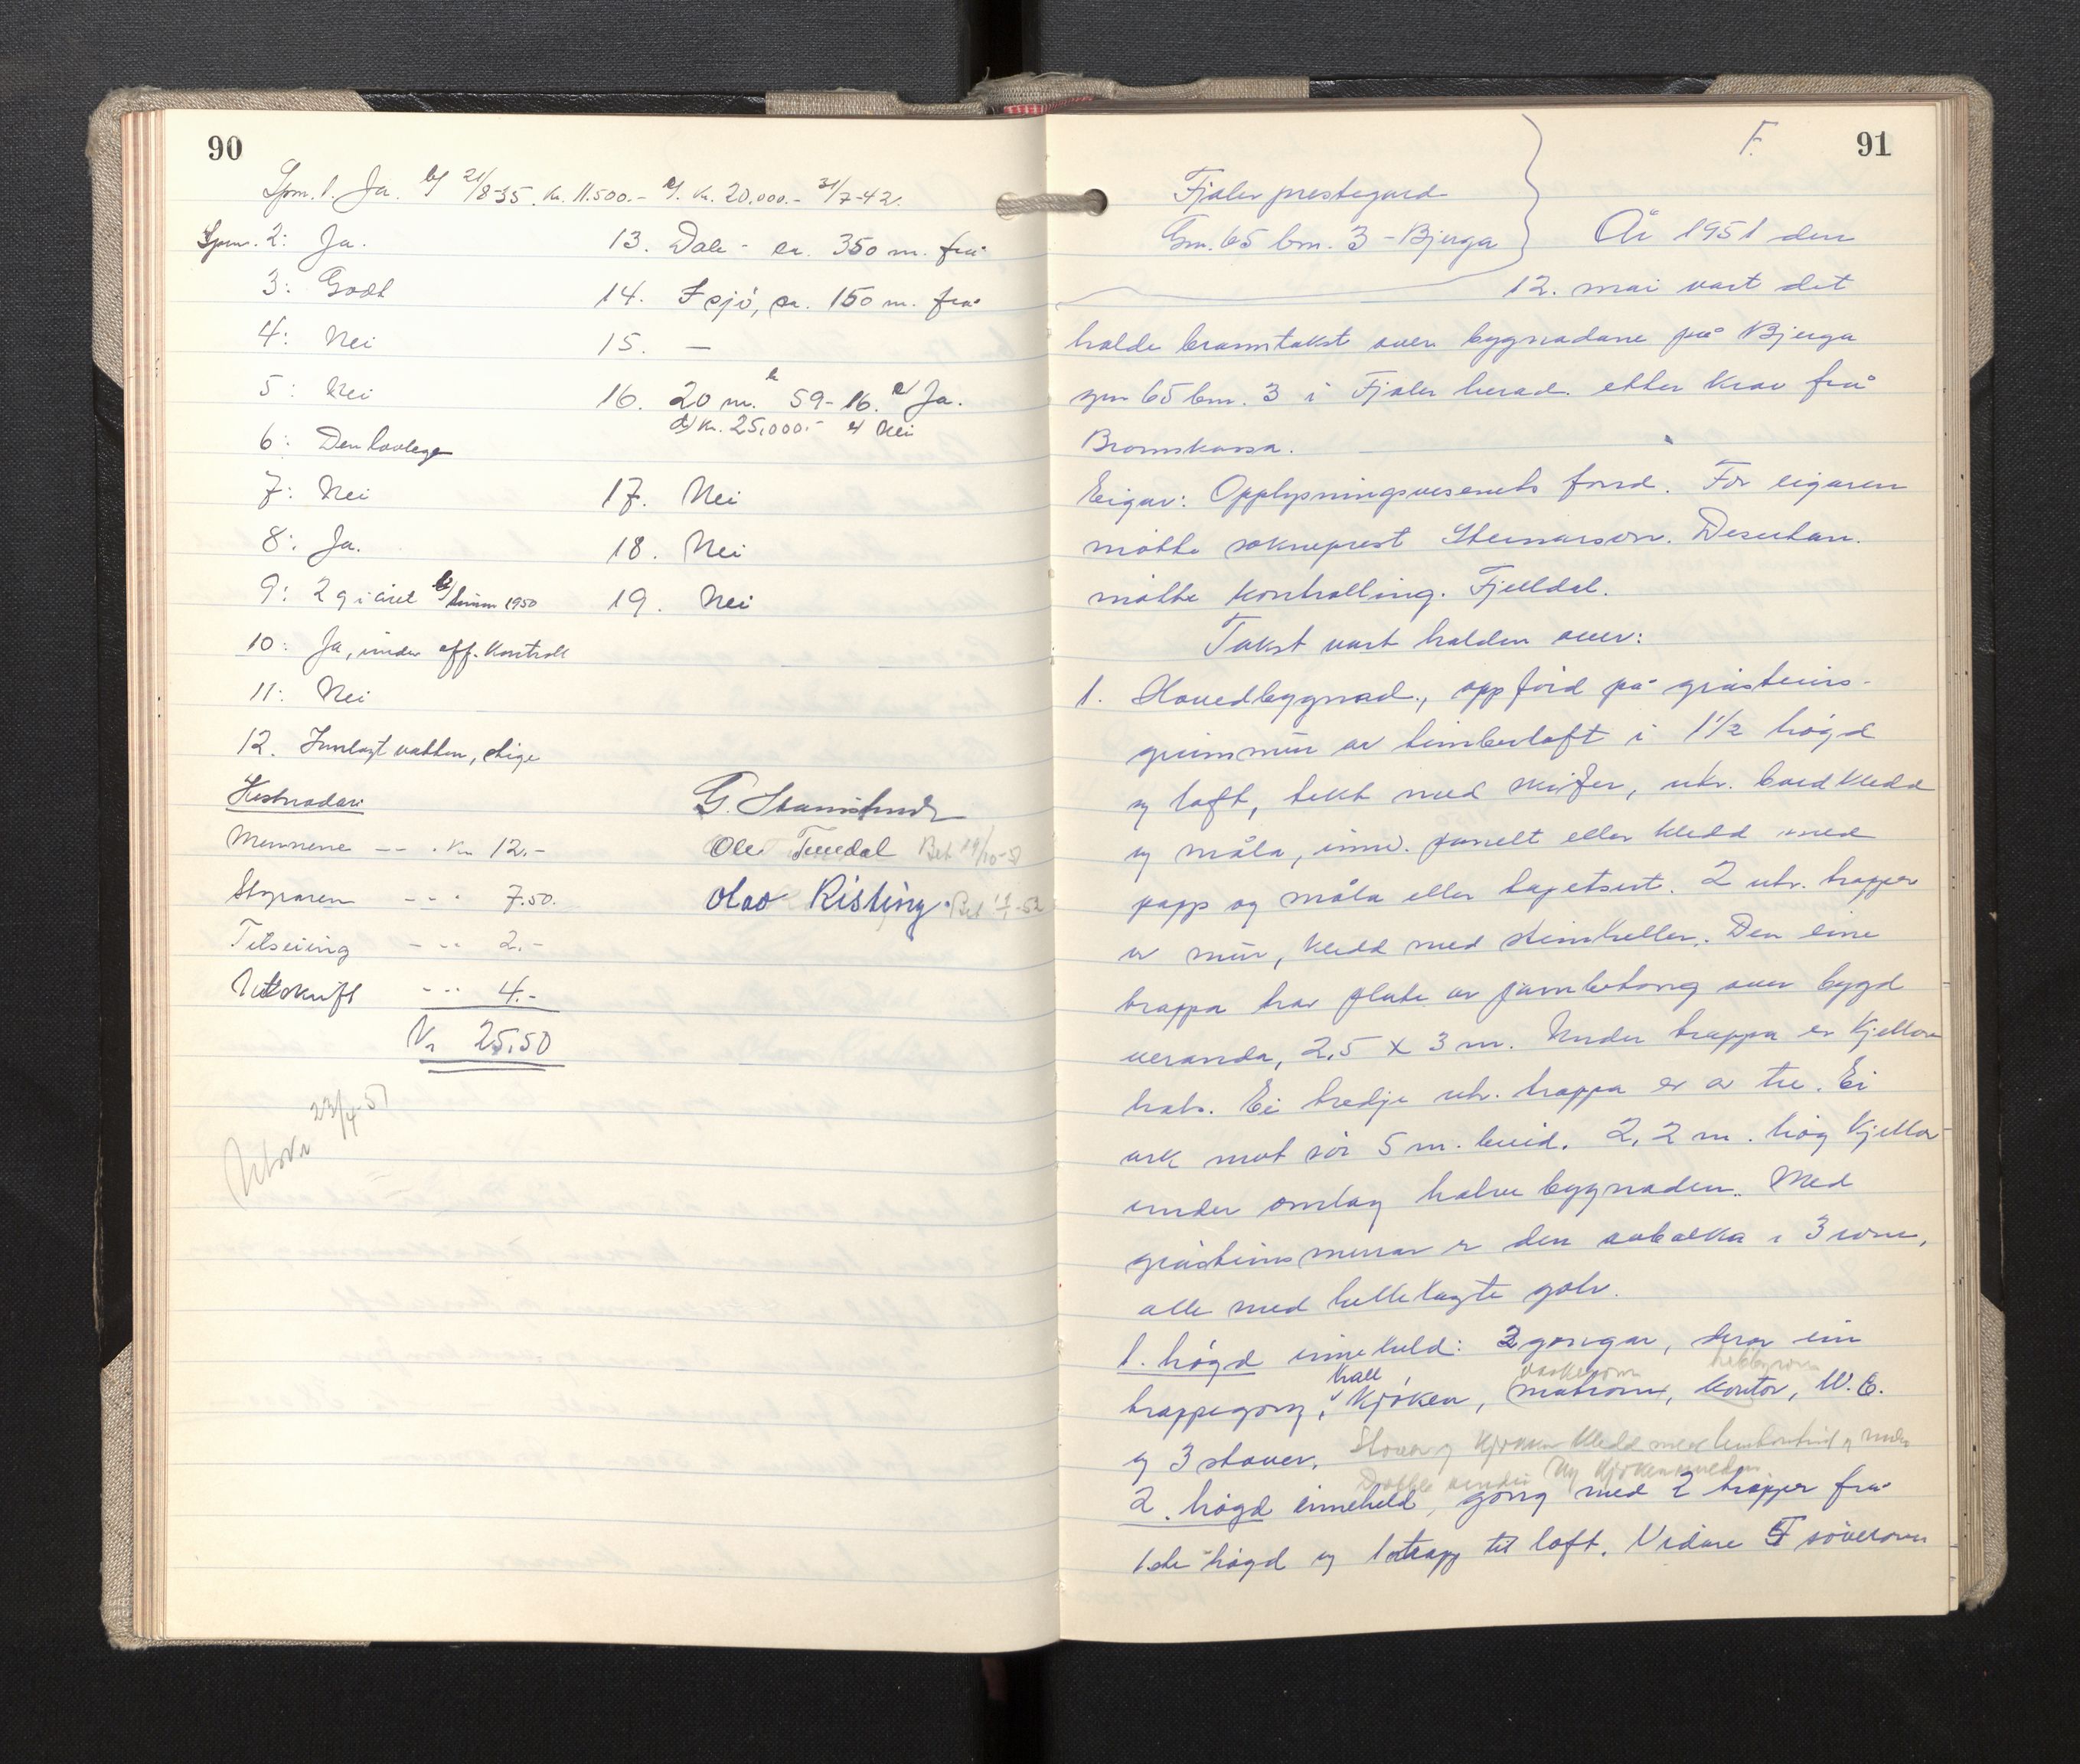 90
Spm. 1. Ja. b/ 21/8-35. kr. 11.500.- c/. kr. 20.000.- 31/7-42.
Spm. 2: Ja.
3: Godt
4: Nei
5: Nei
6: Den lovlege
7: Nei
8: Ja.
9: 2 g i året b/ 1950
10: Ja, under off. kontroll
11: Nei
12. Innlagt vatten, stige
13. Dale - ca. 350 m. frå
14. I sjö, ca. 150 m. frå
15. —
16. 20 m. b 59-16. c/ Ja.
d/ kr. 25.000.- e/ Nei
17. Nei
18. Nei
19. Nei
Kostnadar:
Mennene -- . kr 12.-
Styraren -- . 7.50.
Tilseiing - -- 2.-
Utskrift - -- 4.-
Kr 25.50
Ole
Olav Risting.
23/4-51
91
F.
Fjaler prestegard
Gnr. 65 bnr. 3 - Bjerga
År 1951 den
12. mai vart det
halde branntakst over bygnadane på Bjerga
gnr 65 bnr. 3 i Fjaler herad. etter krav frå
Brannkassa.
Eigar: Opplysningsvesenets fond. For eigaren
møtte sokneprest Steinarson. Desutan.
møtte kontrolling. Fjelldal.
Takst vart halden over:
1. Hovedbygnad., oppförd på gråsteins-
grunnmur av timberloft i 1 1/2 högd
og loft, tekt med skifer, utv. bordkledd
og måla, innv. panelt eller kledd med
papp og måla eller tapetsert. 2 utv. trapper
av mur, kledd med steinheller. Den eine
trappa har plate av jarnbetong over bygd
veranda, 2,5 x 3 m. Under trappa er kjellar
hals. Ei tredje utv. trappa er av tre. Ei
ark mot sör 5 m. breid. 2,2 m. høg kjellar
under omlag halve bygnaden. Med
gråsteinsmurar er den avbolka i 3 rom,
alle med hellelagte golv.
1. högd inneheld: 2 gongar, hrav ein
vaskerom
trappegong, hall kjøken, matrom, kontor, W.C.
og 3 stover. Stover og kjøkken kledd med
2. högd inneheld, gong med 2 trapper frå
1ste högd og 1 trapp til loft. Vidare 5 soverom